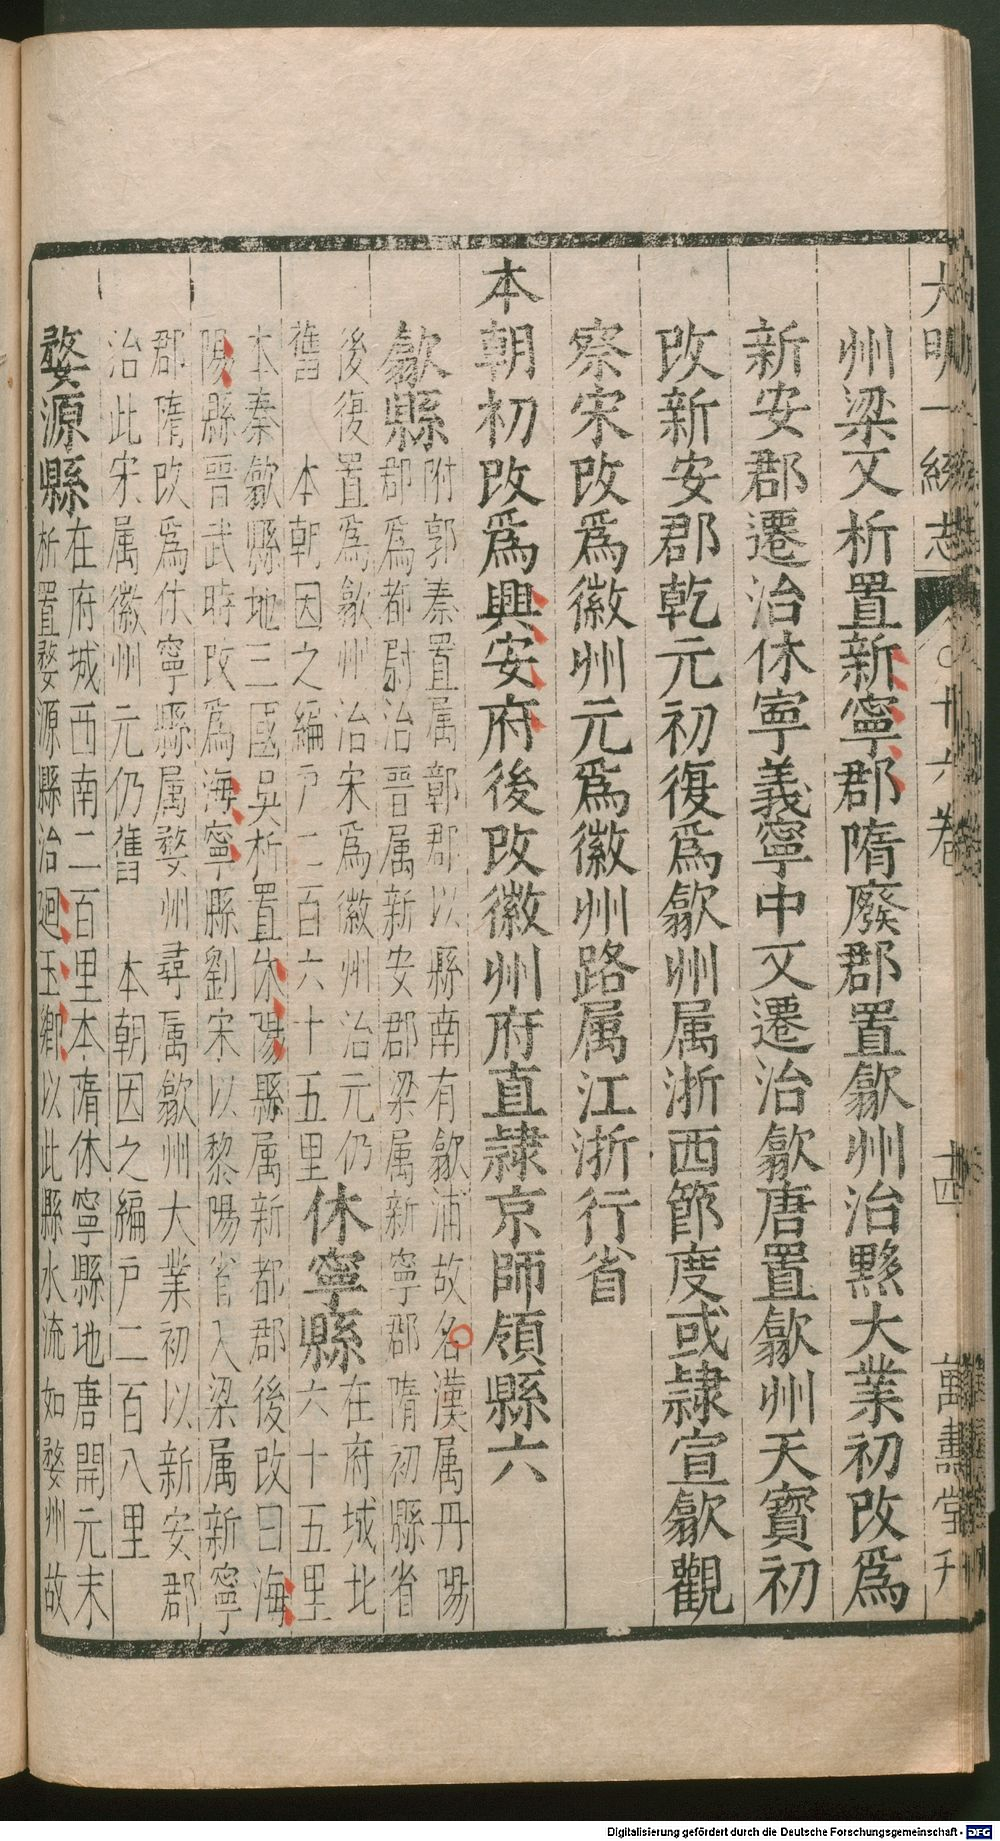 大明一統志
十六卷
十四
萬壽堂刊
州梁又析置新寧郡隋廢郡置歙州治黟大業初改爲
新安郡遷治休寧義寧中又遷治歙唐置歙州天寶初
改新安郡乾元初復爲歙州属浙西節度或隷宣歙觀
察宋改爲徽州元爲徽州路属江浙行省
本朝初改爲興安府後改徽州府直隷京師領縣六
歙縣
附郭秦置属鄣郡以縣南有歙浦故名漢属丹陽
郡爲都尉治晋属新安郡梁属新寧郡隋初縣省
後復置爲歙州治宋爲徽州治元仍
舊 本朝因之編戸二百六十五里
休寧縣
在府城北
六十五里
本秦歙縣地三國吳析置休陽縣属新都郡後改曰海
陽縣晋武時改爲海寧縣劉宋以黎陽省入梁属新寧
郡隋改爲休寧縣属婺州尋属歙州大業初以新安郡
治此宋属徽州元仍舊 本朝因之編戸二百八里
婺源縣
在府城西南二百里本隋休寧縣地唐開元末
析置婺源縣治廻玉鄉以此縣水流如婺州故
Digitalisierung gefördert durch die Deutsche Forschungsgemeinschaft - DFG